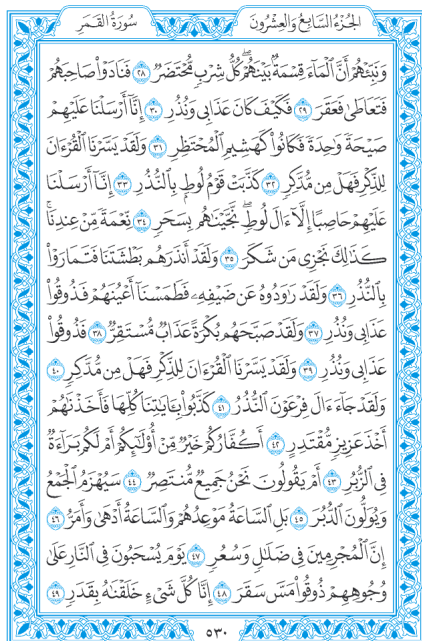 الجُزْءُ السَّابِعُ وَالعِشْرُونَ
سُورَةُ القَمَرِ
وَنَبِّئْهُمْ أَنَّ ٱلْمَآءَ قِسْمَةٌۢ بَيْنَهُمْۖ كُلُّ شِرْبٍ مُّحْتَضَرٌ ٢٨ فَنَادَوْا۟ صَاحِبَهُمْ
فَتَعَاطَىٰ فَعَقَرَ ٢٩ فَكَيْفَ كَانَ عَذَابِى وَنُذُرِ ٣٠ إِنَّآ أَرْسَلْنَا عَلَيْهِمْ
صَيْحَةً وَٰحِدَةً فَكَانُوا۟ كَهَشِيمِ ٱلْمُحْتَظِرِ ٣١ وَلَقَدْ يَسَّرْنَا ٱلْقُرْءَانَ
لِلذِّكْرِ فَهَلْ مِن مُّدَّكِرٍ ٣٢ كَذَّبَتْ قَوْمُ لُوطٍۭ بِٱلنُّذُرِ ٣٣ إِنَّآ أَرْسَلْنَا
عَلَيْهِمْ حَاصِبًا إِلَّآ ءَالَ لُوطٍۖ نَّجَّيْنَٰهُم بِسَحَرٍ ٣٤ نِّعْمَةً مِّنْ عِندِنَاۚ
كَذَٰلِكَ نَجْزِى مَن شَكَرَ ٣٥ وَلَقَدْ أَنذَرَهُم بَطْشَتَنَا فَتَمَارَوْا۟
بِٱلنُّذُرِ ٣٦ وَلَقَدْ رَٰوَدُوهُ عَن ضَيْفِهِۦ فَطَمَسْنَآ أَعْيُنَهُمْ فَذُوقُوا۟
عَذَابِى وَنُذُرِ ٣٧ وَلَقَدْ صَبَّحَهُم بُكْرَةً عَذَابٌ مُّسْتَقِرٌّ ٣٨ فَذُوقُوا۟
عَذَابِى وَنُذُرِ ٣٩ وَلَقَدْ يَسَّرْنَا ٱلْقُرْءَانَ لِلذِّكْرِ فَهَلْ مِن مُّدَّكِرٍ ٤٠
وَلَقَدْ جَآءَ ءَالَ فِرْعَوْنَ ٱلنُّذُرُ ٤١ كَذَّبُوا۟ بِـَٔايَٰتِنَا كُلِّهَا فَأَخَذْنَٰهُمْ
أَخْذَ عَزِيزٍ مُّقْتَدِرٍ ٤٢ أَكُفَّارُكُمْ خَيْرٌ مِّنْ أُو۟لَٰٓئِكُمْ أَمْ لَكُم بَرَآءَةٌ
فِى ٱلزُّبُرِ ٤٣ أَمْ يَقُولُونَ نَحْنُ جَمِيعٌ مُّنتَصِرٌ ٤٤ سَيُهْزَمُ ٱلْجَمْعُ
وَيُوَلُّونَ ٱلدُّبُرَ ٤٥ بَلِ ٱلسَّاعَةُ مَوْعِدُهُمْ وَٱلسَّاعَةُ أَدْهَىٰ وَأَمَرُّ ٤٦
إِنَّ ٱلْمُجْرِمِينَ فِى ضَلَٰلٍ وَسُعُرٍ ٤٧ يَوْمَ يُسْحَبُونَ فِى ٱلنَّارِ عَلَىٰ
وُجُوهِهِمْ ذُوقُوا۟ مَسَّ سَقَرَ ٤٨ إِنَّا كُلَّ شَىْءٍ خَلَقْنَٰهُ بِقَدَرٍ ٤٩
٥٣٠